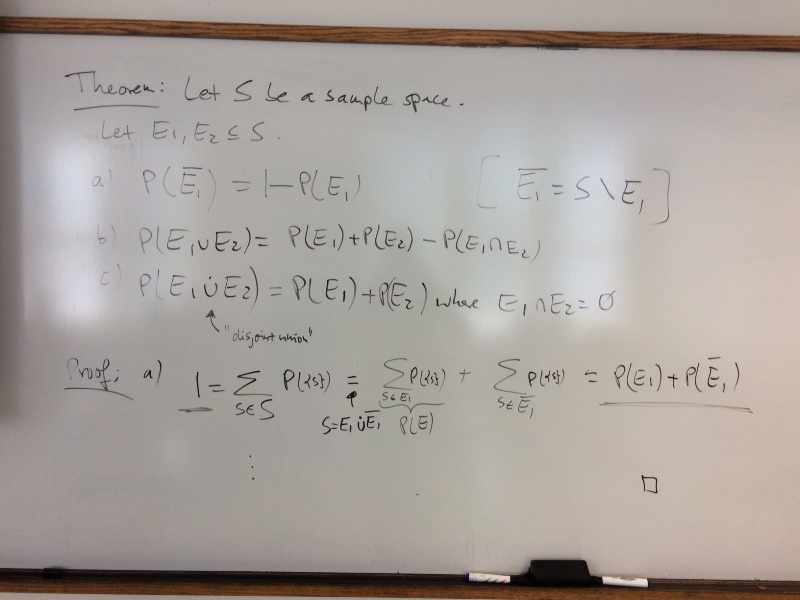 Theorem: Let S be a sample space.
Let E₁, E₂ ⊆ S.
a) P(E̅₁) = 1 − P(E₁) [ E̅₁ = S \ E₁ ]
b) P(E₁ ∪ E₂) = P(E₁) + P(E₂) − P(E₁ ∩ E₂)
c) P(E₁ ∪̇ E₂) = P(E₁) + P(E₂) where E₁ ∩ E₂ = ∅
"disjoint union"
Proof: a) 1 = ∑ P({s}) = ∑ P({s}) + ∑ P({s}) = P(E₁) + P(E̅₁)
s∈S s∈E₁ s∈E̅₁
S = E₁ ∪̇ E̅₁ P(E)
⋮
□